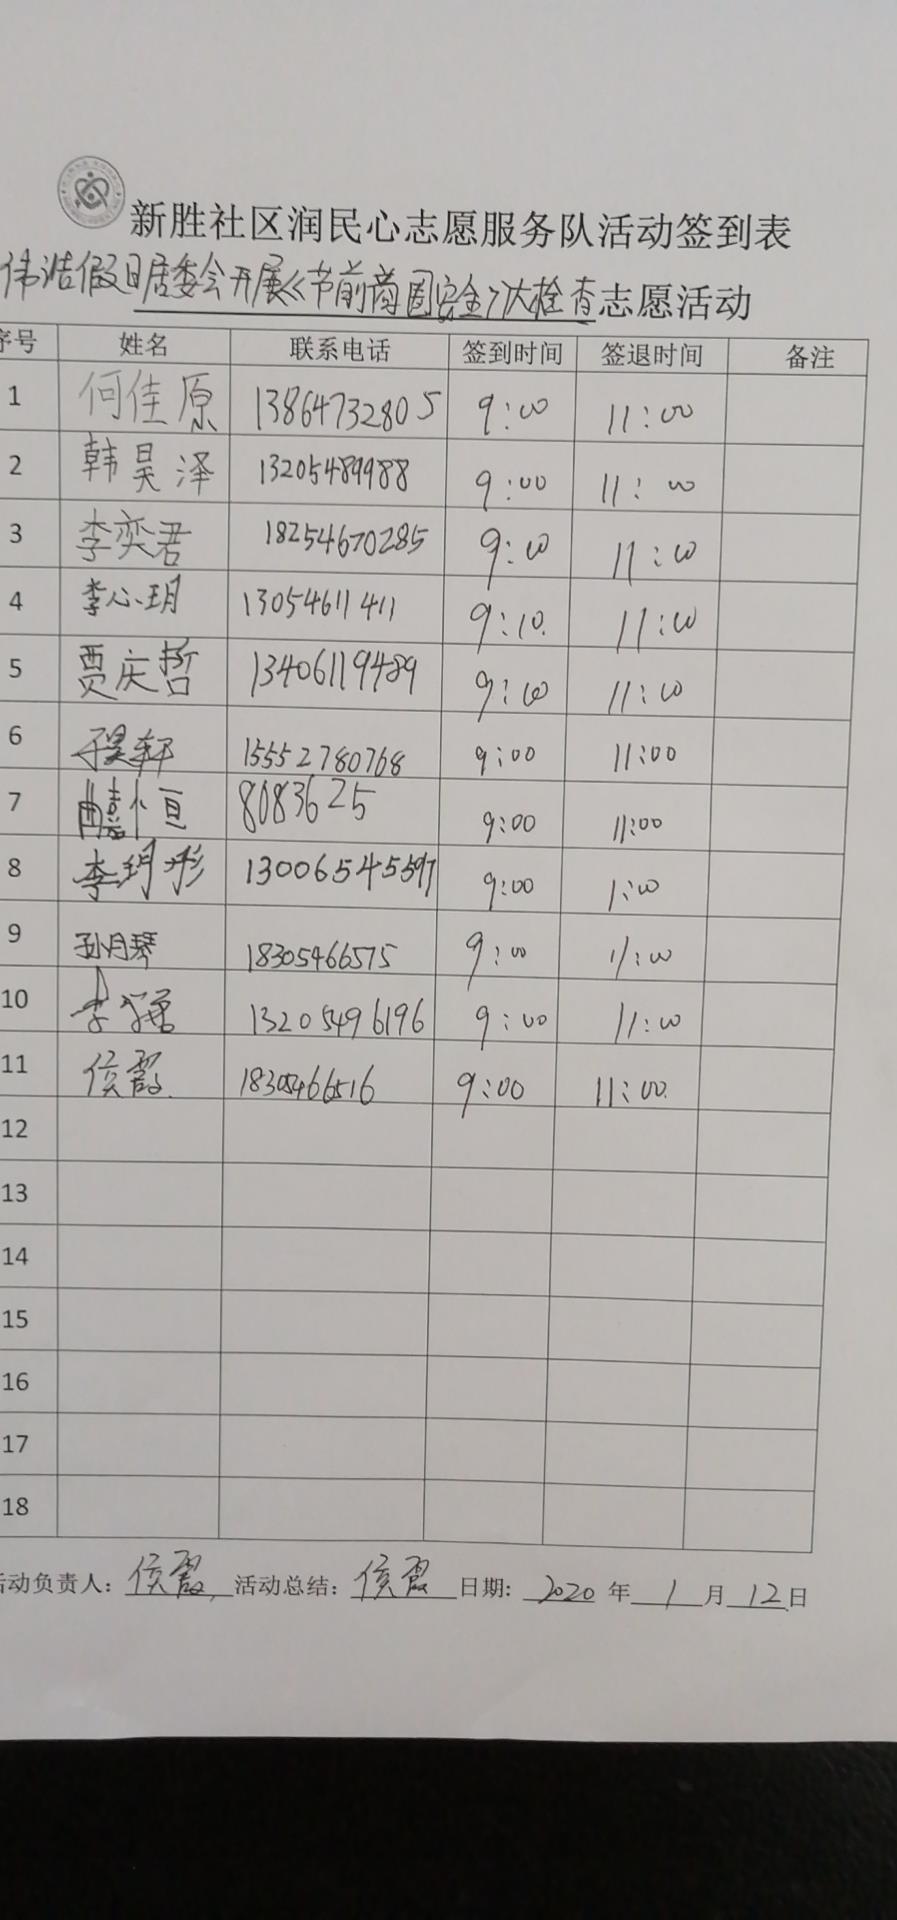 新胜社区润民心志愿服务队活动签到表
伟浩假日居委会开展《节前商圈安全》大检查志愿活动
序号 姓名 联系电话 签到时间 签退时间 备注
1 何佳原 13864732805 9:00 11:00
2 韩昊泽 13205489988 9:00 11:00
3 李奕君 18254670285 9:00 11:00
4 李心玥 13054611411 9:10. 11:00
5 贾庆哲 13406119489 9:00 11:00
6 15552780768 9:00 11:00
7 8083625 9:00 11:00
8 李玥彤 13006545597 9:00 1:00
9 孙月琴 18305466575 9:00 11:00
10 13205496196 9:00 11:00
11 侯霞 18305466516 9:00 11:00.
12
13
14
15
16
17
18
活动负责人: 侯霞 活动总结: 侯霞 日期: 2020 年 1 月 12 日